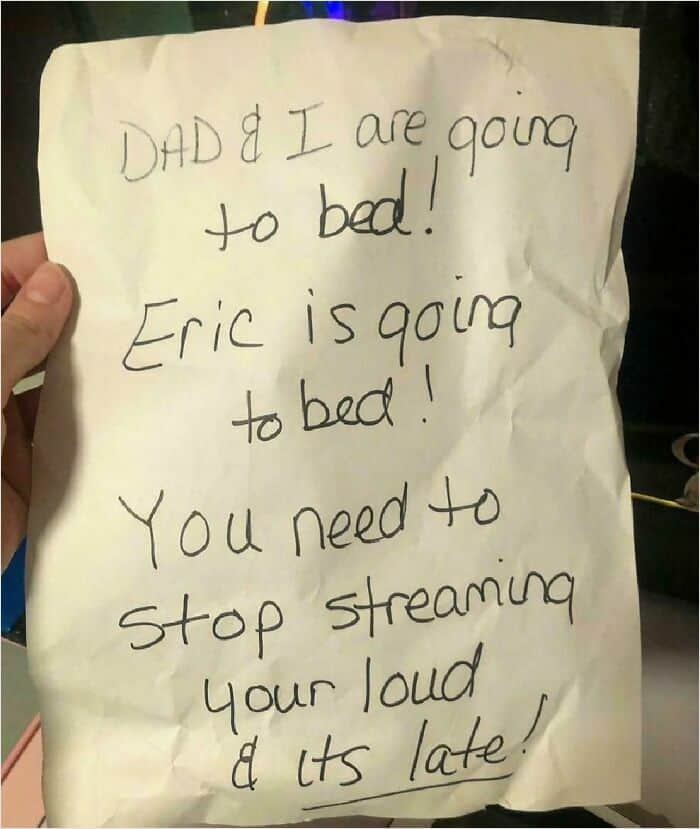 DAD & I are going
to bed!
Eric is going
to bed!
You need to
stop streaming
your loud
& its late!